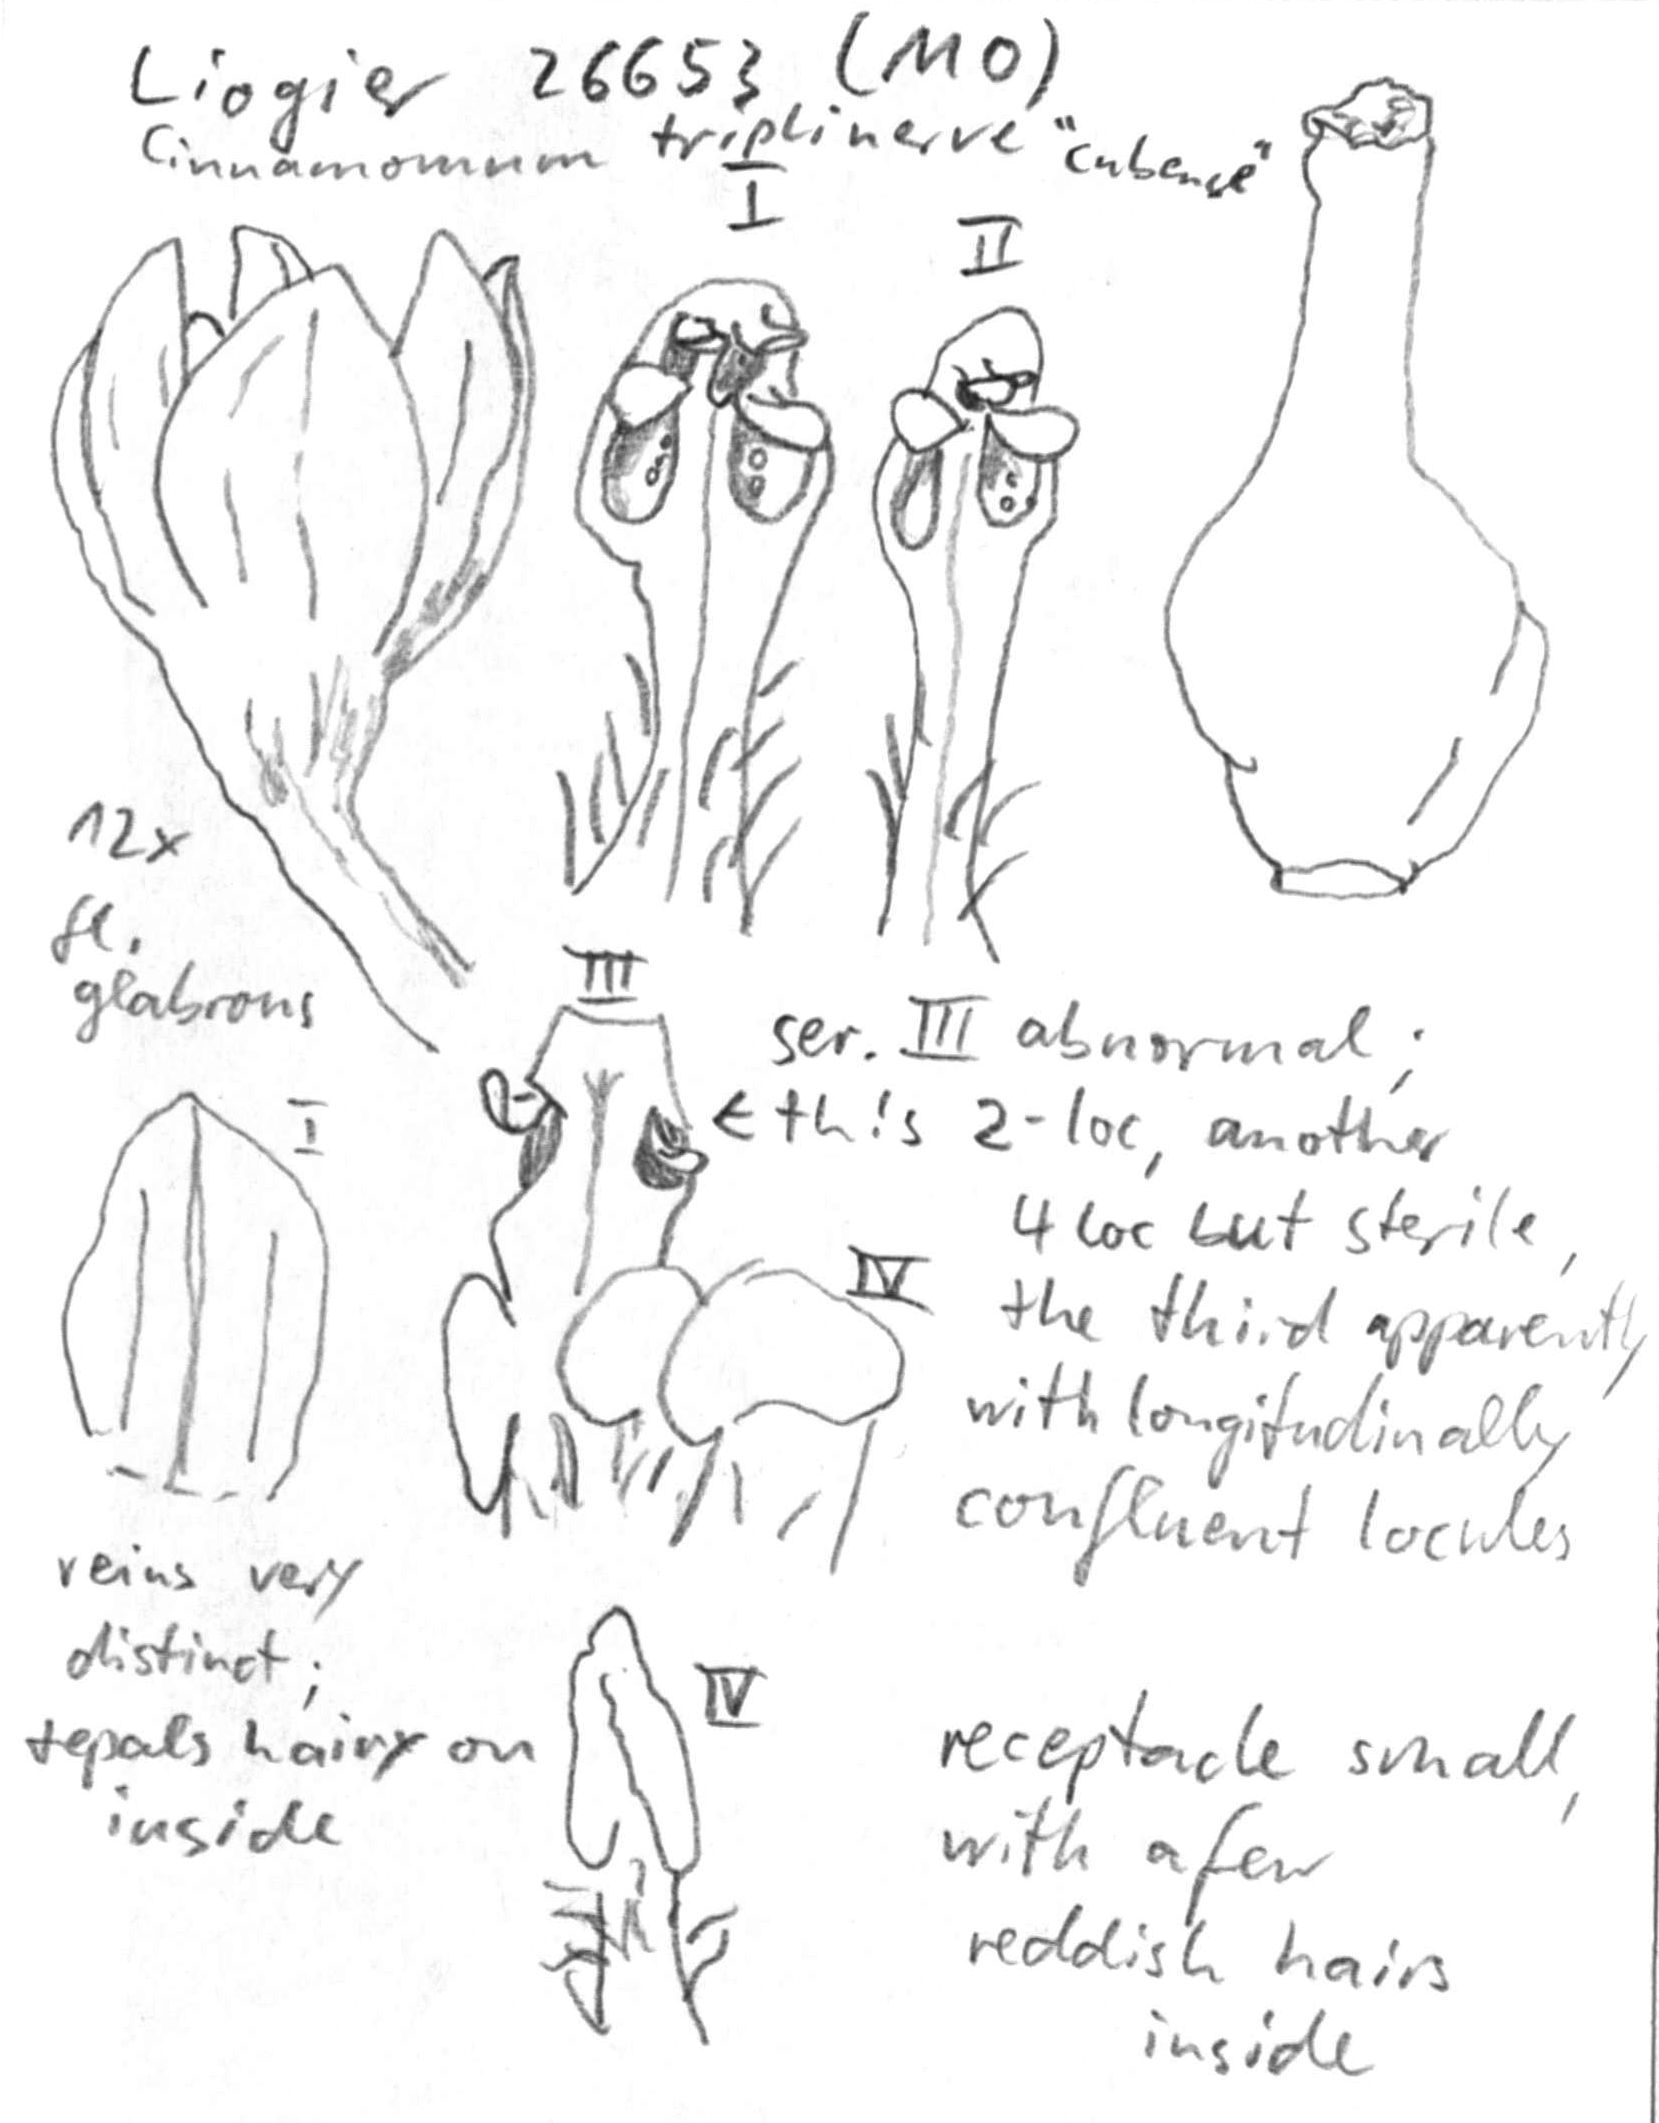 Liogier 26653 (MO)
Cinnamomum triplinerve "cubense"
I
II
12x
fl.
glabrous
III
ser. III abnormal;
← this 2-loc, another
4 loc but sterile,
the third apparently
with longitudinally
confluent locules
IV
I
veins very
distinct;
tepals hairy on
inside
IV
receptacle small,
with a few
reddish hairs
inside